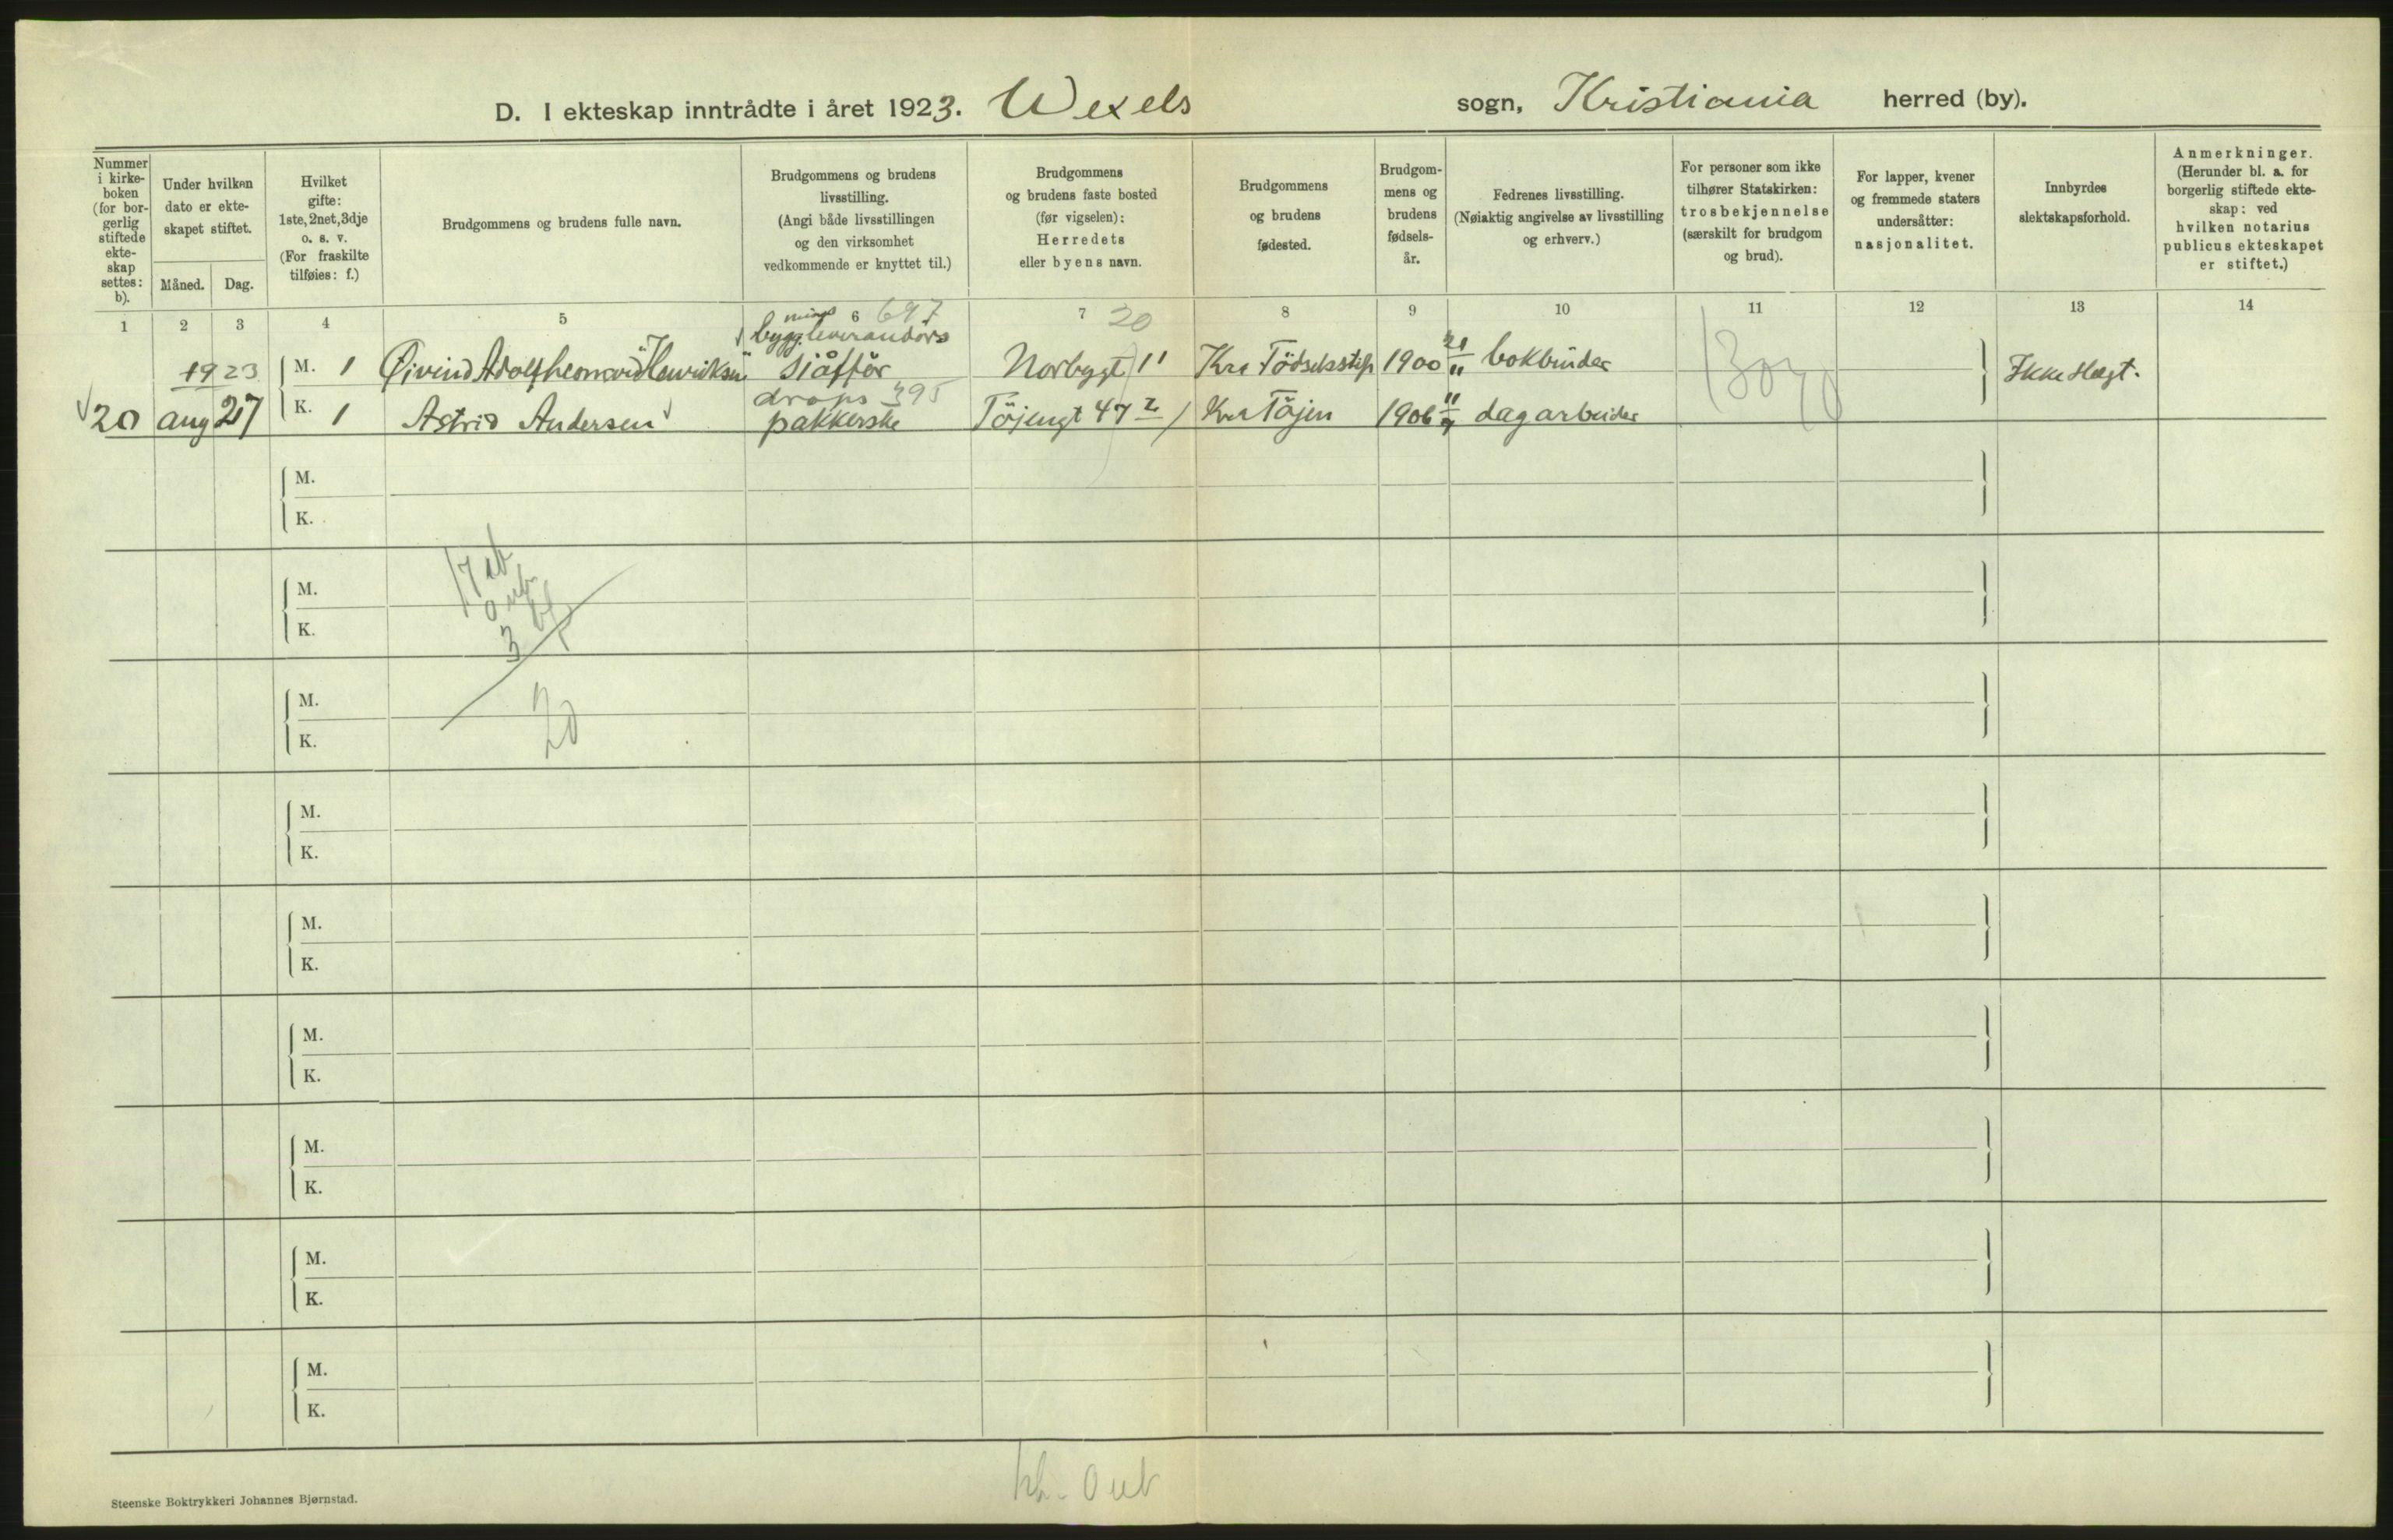 D. I ekteskap inntrådte i året 1923. Wexels sogn, Kristiania herred (by).
Nummer i kirke-boken (for bor-gerlig stiftede ekte-skap settes: b).
Under hvilken dato er ekte-skapet stiftet.
Måned. Dag.
Hvilket gifte: 1ste, 2net, 3dje o. s. v. (For fraskilte tilføies: f.)
Brudgommens og brudens fulle navn.
Brudgommens og brudens livsstilling. (Angi både livsstillingen og den virksomhet vedkommende er knyttet til.)
Brudgommens og brudens faste bosted (før vigselen): Herredets eller byens navn.
Brudgommens og brudens fødested.
Brudgom-mens og brudens fødsels-år.
Fedrenes livsstilling. (Nøiaktig angivelse av livsstilling og erhverv.)
For personer som ikke tilhører Statskirken: trosbekjennelse (særskilt for brudgom og brud).
For lapper, kvener og fremmede staters undersåtter: nasjonalitet.
Innbyrdes slektskapsforhold.
Anmerkninger. (Herunder bl. a. for borgerlig stiftede ekte-skap: ved hvilken notarius publicus ekteskapet er stiftet.)
1 2 3 4 5 6 7 8 9 10 11 12 13 14
697 20
byggleverandörs
1923 M. 1 Øivind Adolf Henriksen sjåfför Norbygt 11 Kra Födselsstift 1900 21/11 bokbinder Ikke slegt.
drops 395
20 aug 27 K. 1 Astrid Andersen pakkerske Töjengt 47 2 Kra Töjen 1906 11/7 dagarbeider
M.
K.
M.
K.
17 ub
0 ub
3
M.
K.
20
M.
K.
M.
K.
M.
K.
M.
K.
M.
K.
M.
K.
0 ub
Steenske Boktrykkeri Johannes Bjørnstad.